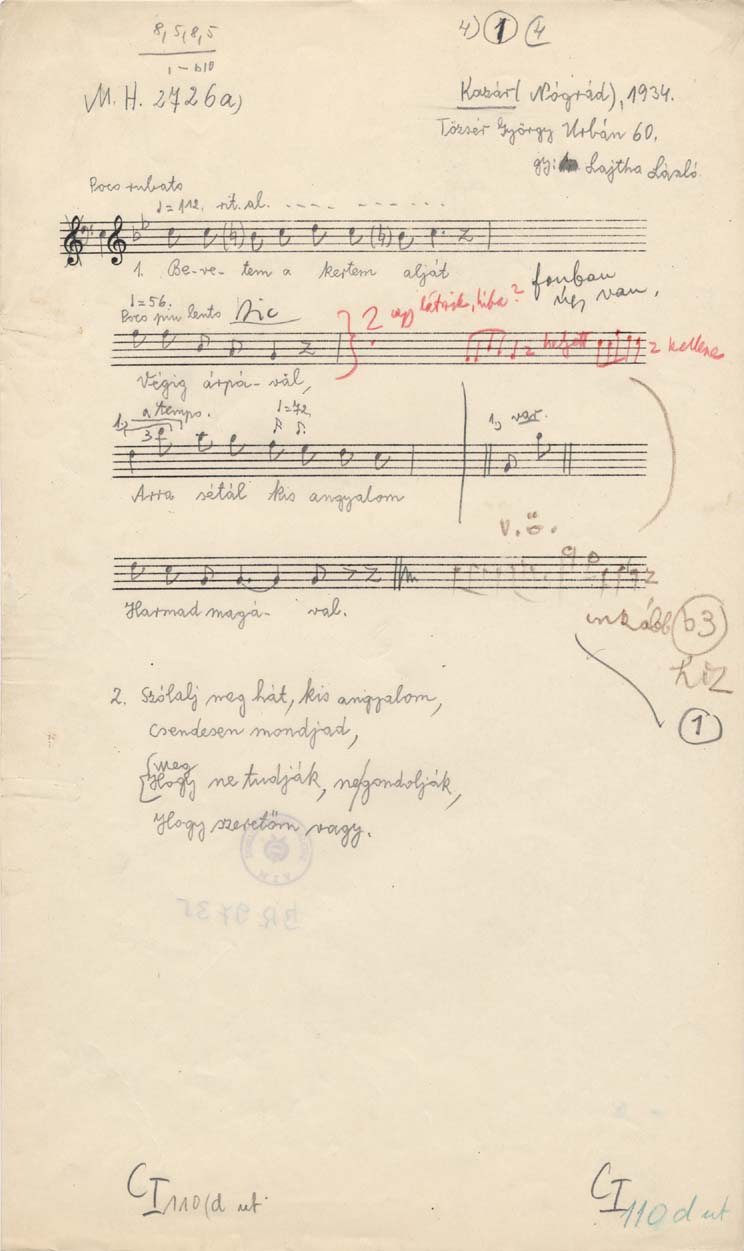 8, 5, 8, 5
1 – b10
4) 1 4
M. H. 2726a)
Kazár (Nógrád), 1934.
Tőzsér György Urbán 60.
gy: Lajtha László
Poco rubato
♩=112. rit. al. - - - - - - - - - -
1. Be-ve-tem a kertem alját
fonban
úgy van.
♩=56.
Poco più lento Sic
? úgy látszik, hiba? helyett kellene
Végig árpá-val,
1) a tempo. ♩=72,
3
1) var.
Arra sétál kis angyalom
V. ö.
Harmad magá-val.
inkább b3
1
2. Szólalj meg hát, kis angyalom,
Csendesen mondjad,
meg
Hogy ne tudják, ne gondolják,
Hogy szeretőm vagy.
BR 9735
CI 110(d ut
CI 110 d ut